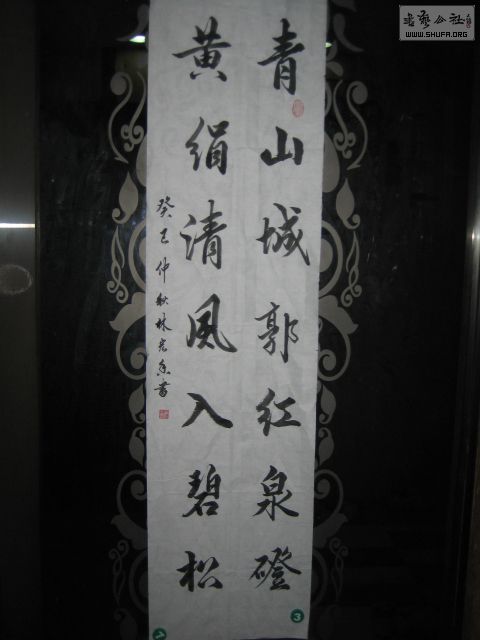 青山城郭红泉磴
黄绢清风入碧松
癸巳仲秋林宏书
书艺公社
WWW.SHUFA.ORG
3